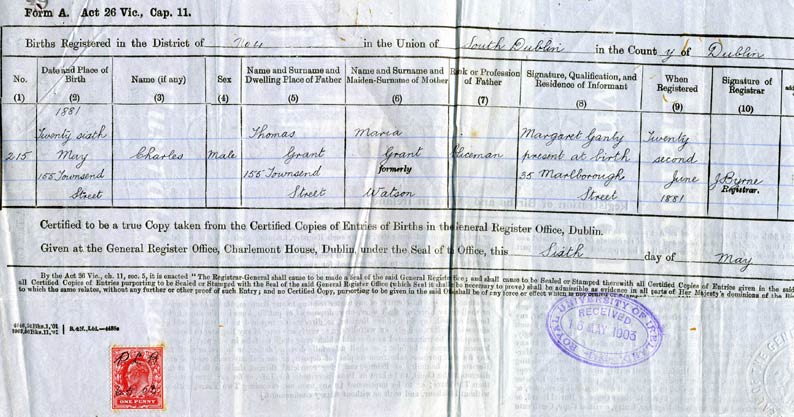 Form A. Act 26 Vic., Cap. 11.
Births Registered in the District of No 4 in the Union of South Dublin in the County of Dublin
No. Date and Place of Birth Name (if any) Sex Name and Surname and Dwelling Place of Father Name and Surname and Maiden-Surname of Mother Rank or Profession of Father Signature, Qualification, and Residence of Informant When Registered Signature of Registrar
(1) (2) (3) (4) (5) (6) (7) (8) (9) (10)
1881
Twenty sixth Thomas Maria Margaret Ganly Twenty
215 May Charles Male Grant Grant Policeman present at birth second
155 Townsend 155 Townsend formerly 35 Marlborough June J Byrne
Street Street Watson Street 1881 Registrar.
Certified to be a true Copy taken from the Certified Copies of Entries of Births in the General Register Office, Dublin.
Given at the General Register Office, Charlemont House, Dublin, under the Seal of Office, this Sixth day of May
By the Act 26 Vic., ch. 11, sec. 5, it is enacted "The Registrar-General shall cause to be made a Seal of the said General Register Office; and shall cause to be Sealed or Stamped therewith all Certified Copies of Entries given in the said
all Certified Copies of Entries purporting to be Sealed or Stamped with the Seal of the said General Register Office (which Seal it shall be necessary to prove) shall be admissible as evidence in all parts of Her Majesty's dominions
to which the same relates, without any further or other proof of such Entry; and no Certified Copy, purporting to be given in the said Office shall be of any force or effect which is not Sealed or Stamped
ROYAL UNIVERSITY OF IRELAND
RECEIVED
MAY 1903
ONE PENNY